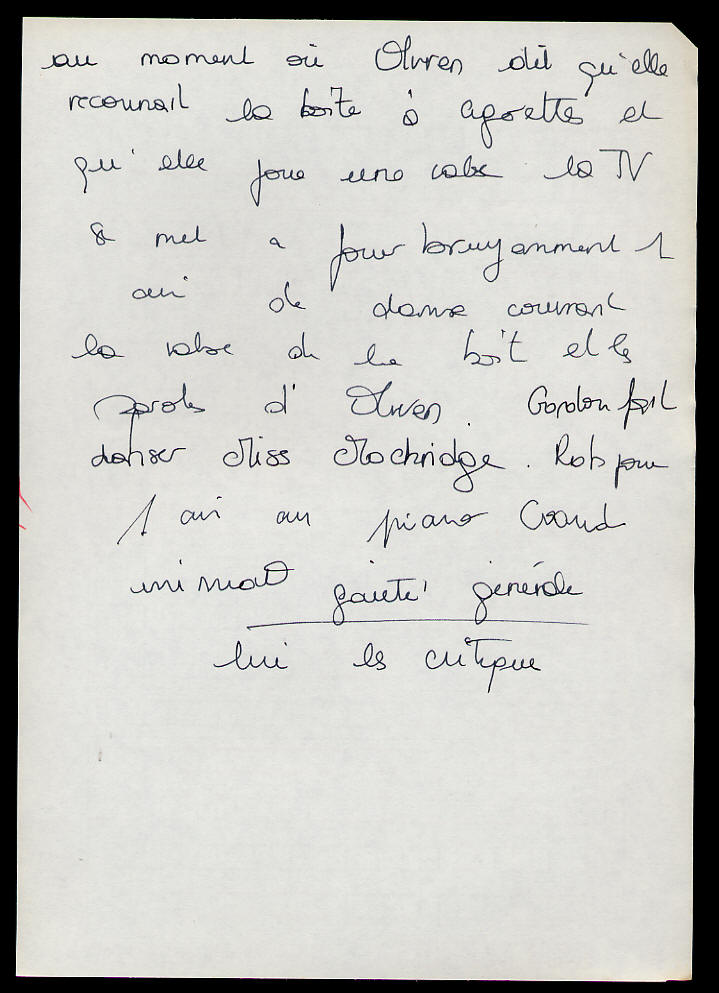 au moment où Olwen dit qu'elle
reconnait la boîte à cigarettes et
qu'elle joue une valse la TV
se met a jouer bruyamment 1
air de danse couvrant
la valse de la boit et les
paroles d'Olwen. Gordon fait
danser Miss Mockridge. Rob joue
1 air au piano
gaieté générale
lui les critique